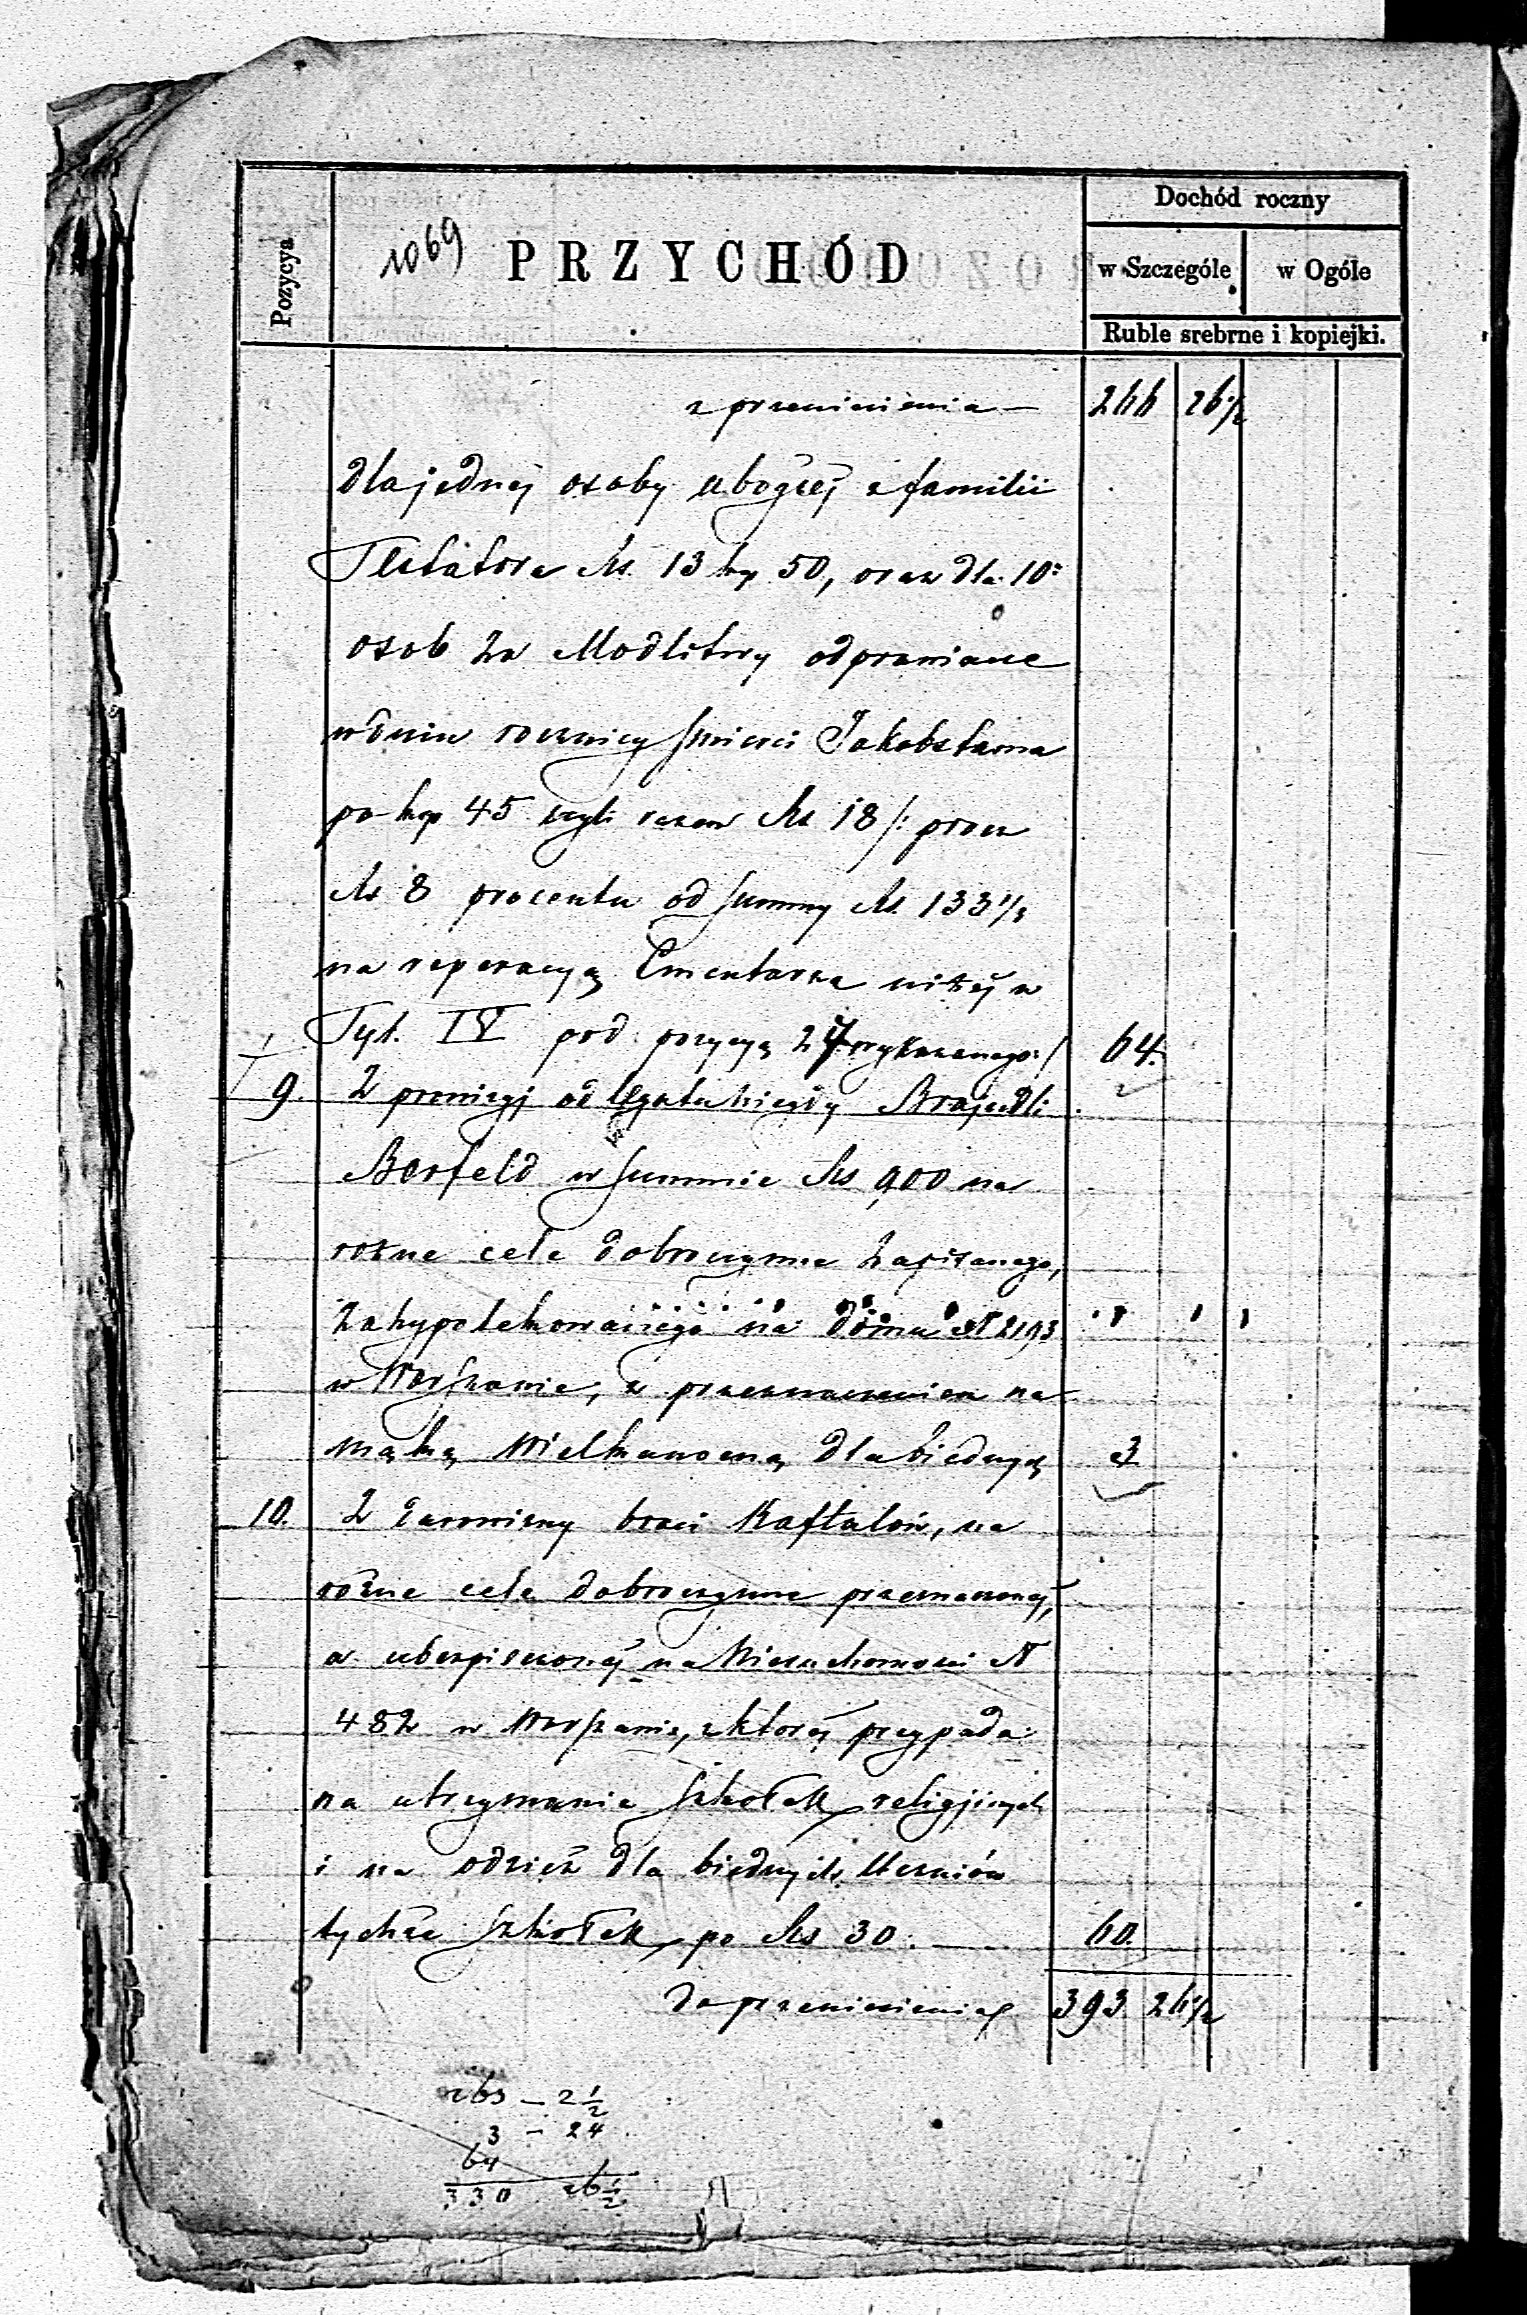 Dochód roczny
Pozycya
1069 PRZYCHÓD
w Szczególe w Ogóle
Ruble srebrne i kopiejki.
z przeniesienia — 266 26 1/2
dla jednéj osoby uboższéj z familii
Testatora Rs. 13 kop 50, oraz dla 10
osob za Modlitwy odprawiane
w dniu rocznicy śmierci Jakobstama
po kop 45 czyli razem Rs 18 /: procz
Rs 8 procentu od summy Rs. 133 1/3
na reperacyą Cmentarza niżéj w
Tyt. IV pod pozycyą 27 wykazanego :/ 64.
9. Z prowizyj od legatu niegdy Brajndli
Berfeld w summie Rs 900 na
rożne cele dobroczynne zapisanego,
zahypotekowanego na domu N 2193
w Warszawie, z przeznaczeniem na
mąkę Wielkanocną dla biednych 3
10. Z darowizny braci Kaftalów, na
różne cele dobroczynne przeznaczonéj,
a ubezpieczonéj na Nieruchomosci N
482 w Warszawie, z któréj przypada
na utrzymanie szkołek religijnych
i na odzież dla biednych Uczniów
tychże szkołek po Rs 30. — 60
Do przeniesienia 393 26 1/2
263 — 2 1/2
3 — 24
64
330 26 1/2